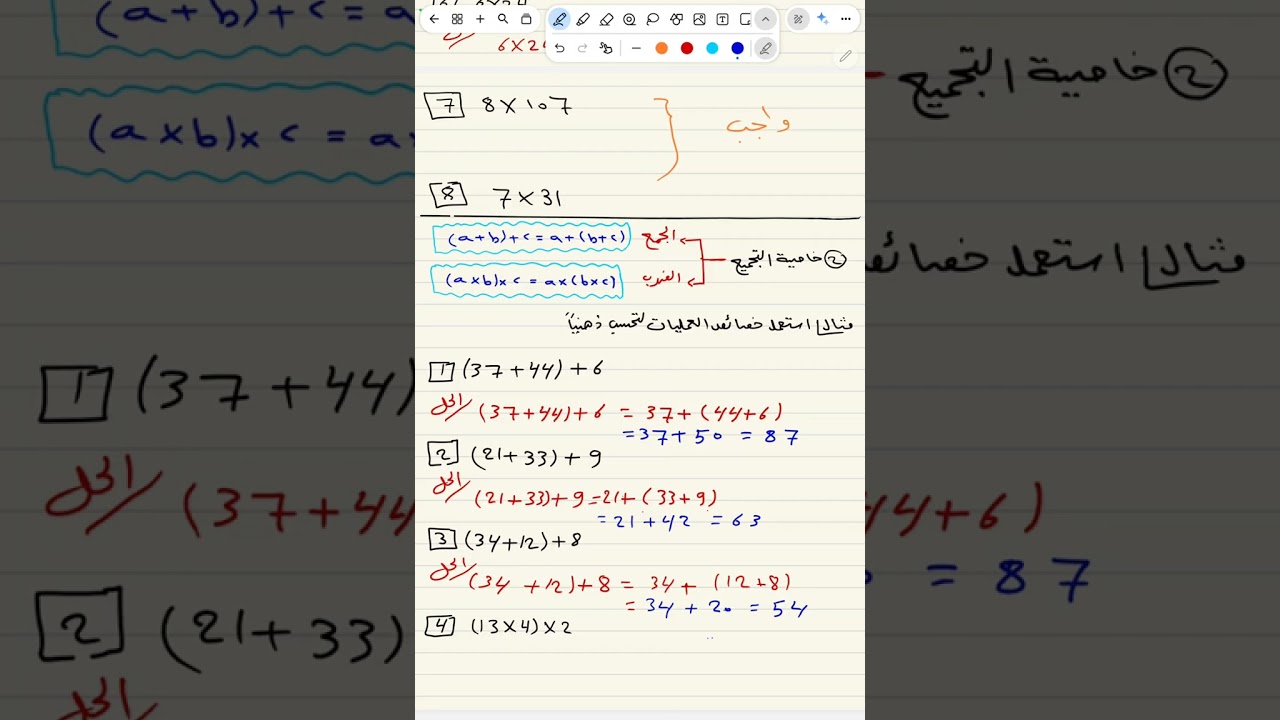 6×24
7 8×107
واجب
8 7×31
② خاصية التجميع
الجمع (a+b)+c=a+(b+c)
الضرب (a×b)×c=a×(b×c)
مثال استعمل خصائص العمليات لتحسب ذهنياً
1 (37+44)+6
الحل (37+44)+6 = 37+(44+6)
=37+50 = 87
2 (21+33)+9
الحل (21+33)+9=21+(33+9)
= 21+42 = 63
3 (34+12)+8
الحل (34+12)+8 = 34+(12+8)
= 34+20 = 54
4 (13×4)×2